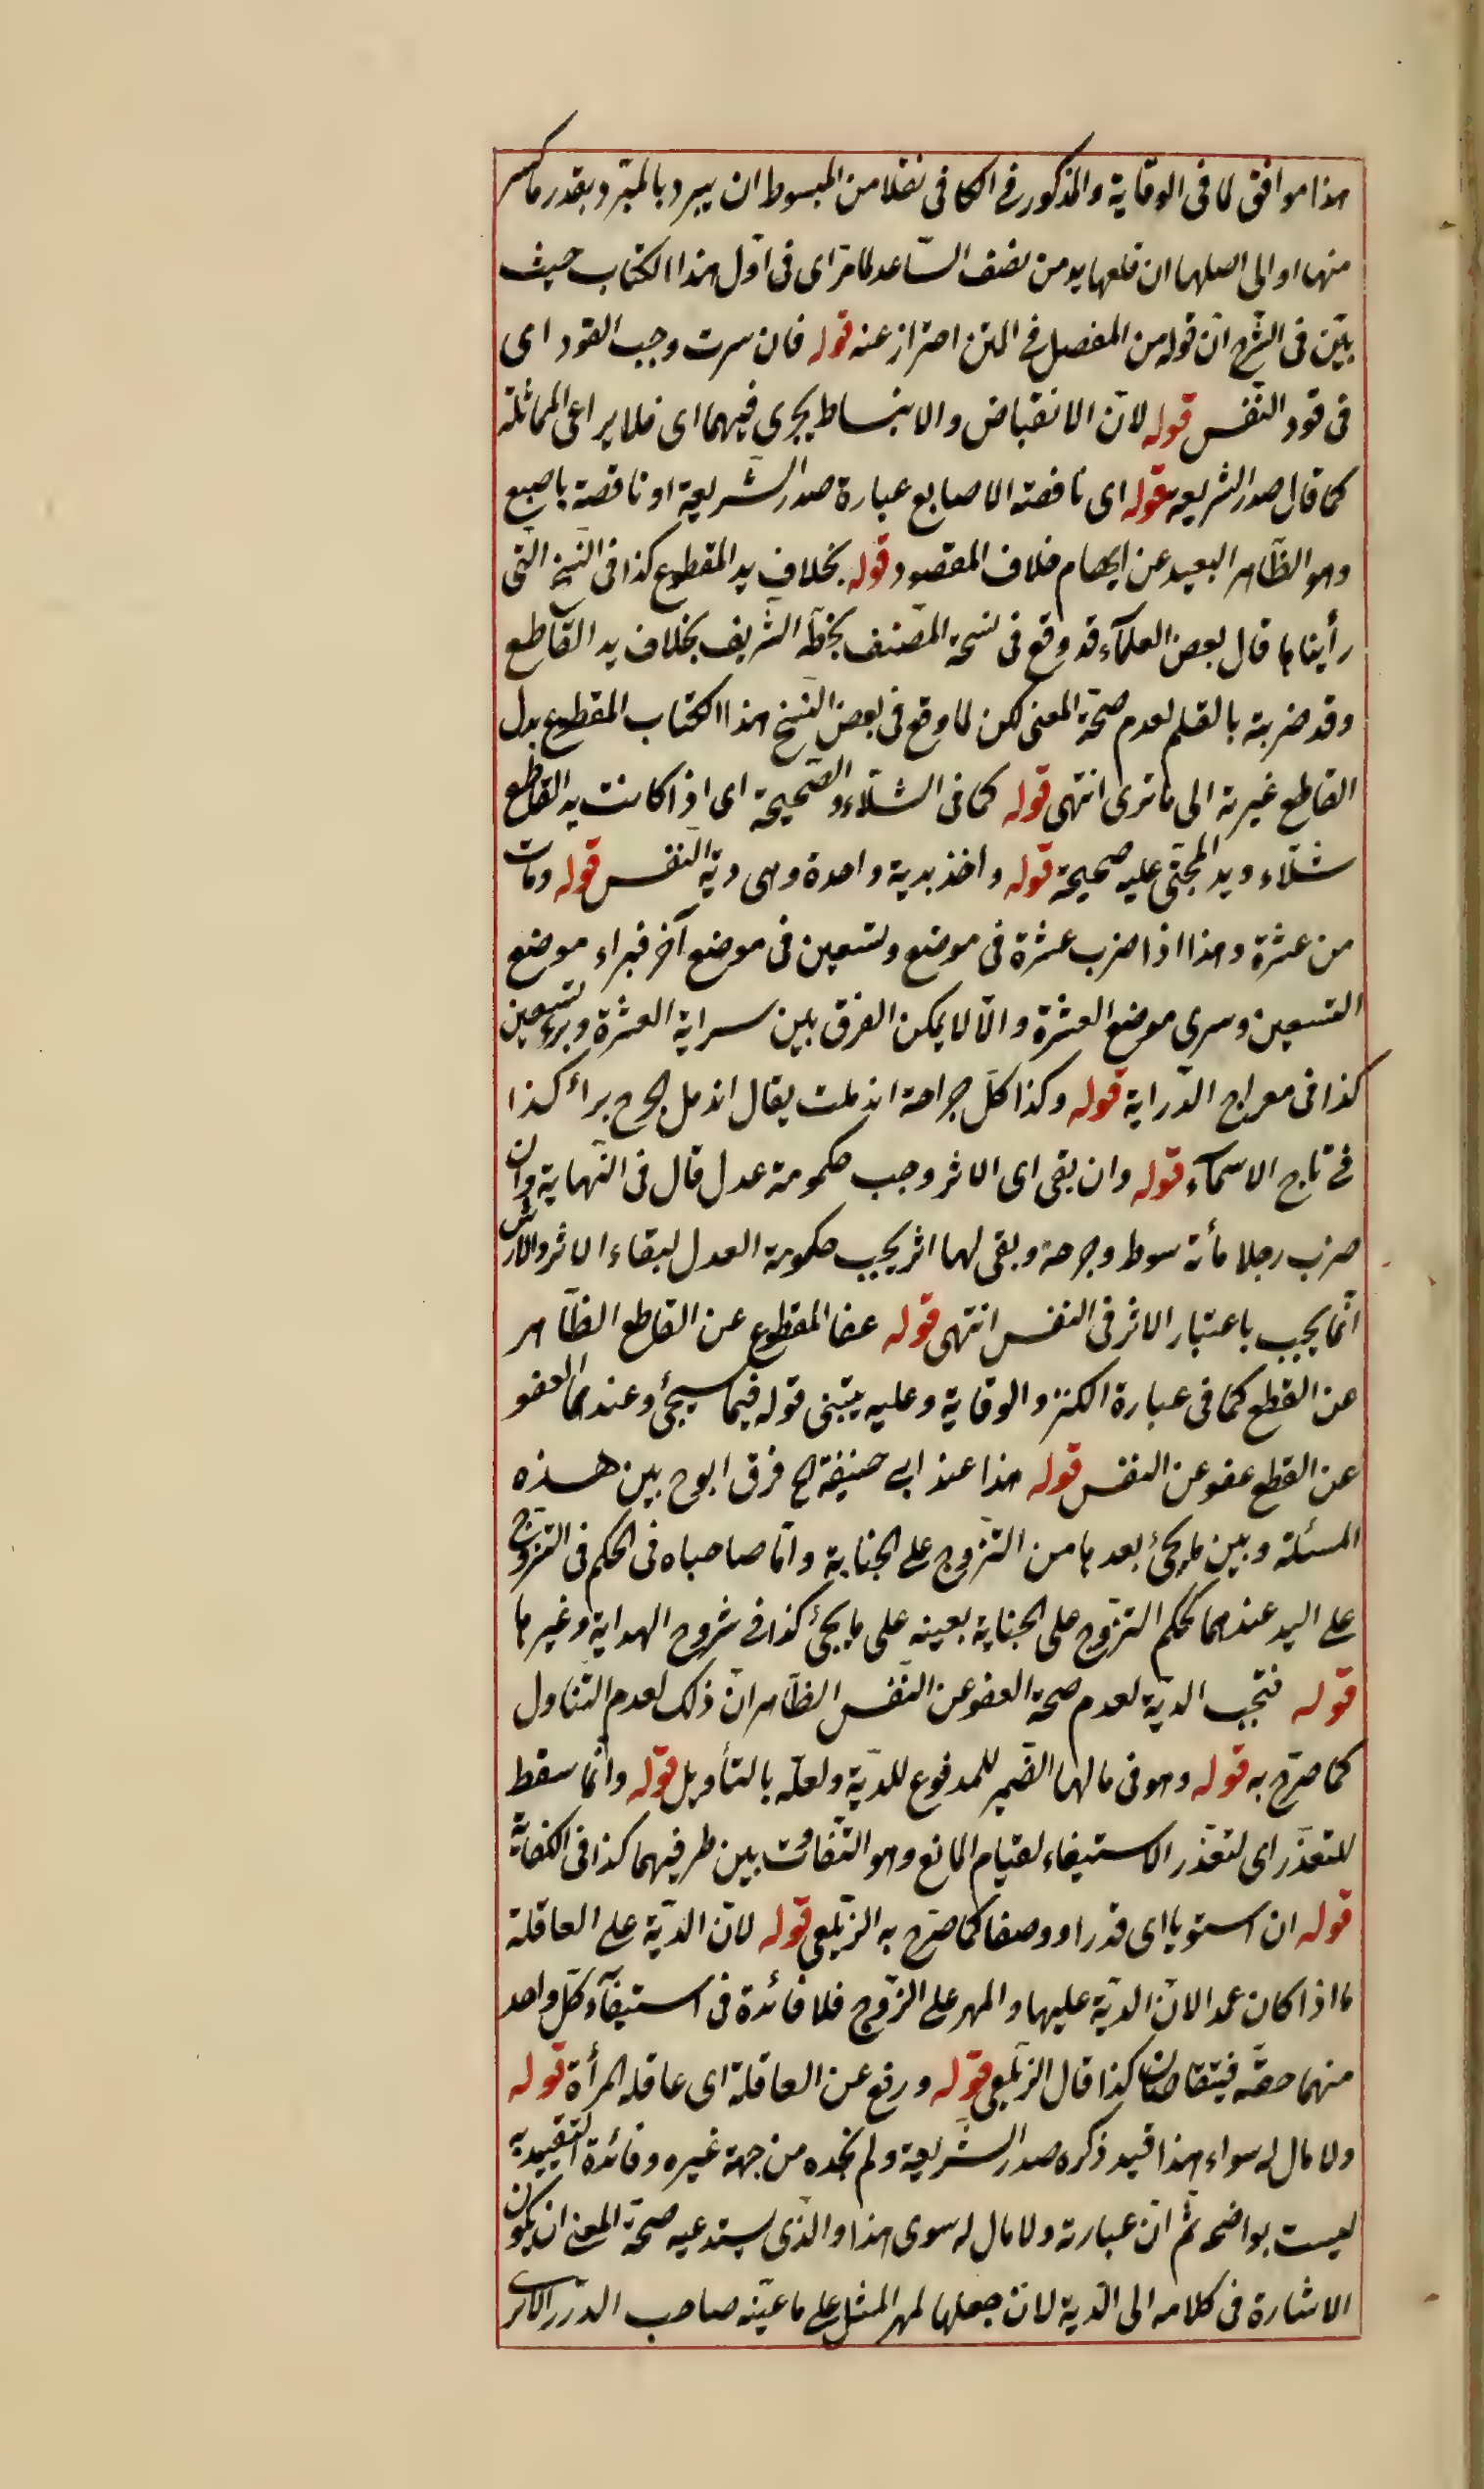 هذا موافق لما فى الوقاية والمذكور فى الكافى نقلا من المبسوط ان يبرد بالمبرد بقدر ما كسر
منها او الى اصلها ان قلعها يد من نصف الساعد لما مرّ اى فى اوّل هذا الكتاب حيث
بيّن فى الشّرح انّ قوله من المفصل فى المتن احتراز عنه قوله فان سرت وجب القود اى
فى قود النّفس قوله لانّ الانقباض والانبساط يجرى فيهما اى فلا يراعى المماثلة
كما قال صدر الشريعة قوله اى ناقصة الاصابع عبارة صدر الشّريعة او ناقصة باصبع
وهو الظّاهر البعيد عن ايهام خلاف المقصود قوله بخلاف يد المقطوع كذا فى النّسخ الّتى
رأيناها قال بعض العلمآء قد وقع فى نسخة المصّنف بخطّه الشّريف بخلاف يد القاطع
وقد ضربته بالقلم لعدم صحّة المعنى لكن لما وقع فى بعض النسخ هذا الكتاب المقطوع بدل
القاطع غيرته الى ما ترى انتهى قوله كما فى الشلّاء والصّحيحة اى اذا كانت يد القاطع
شلّاء ويد المجنّى عليه صحيحة قوله واخذ بدية واحدة وهى دية النّفس قوله ومات
من عشرة وهذا اذا ضرب عشرة فى موضع وتسعين فى موضع آخر فبراء موضع
التسعين وسرى موضع العشرة والّا لا يمكن الفرق بين سراية العشرة وبرء تسعين
كذا فى معراج الدّراية قوله وكذا كلّ جراحة اندملت يقال اندمل الجرح برأ كذا
فى تاج الاسمآء قوله وان بقى اى الاثر وجب حكومة عدل قال فى النّهاية وان
ضرب رجلا مأئة سوط وجرحه وبقى لها اثر يجب حكومة العدل لبقاء الاثر والارش
انّما يجب باعتبار الاثر فى النفس انتهى قوله عفا المقطوع عن القاطع الظّاهر
عن القطع كما فى عبارة الكنز والوقاية وعليه يبتنى قوله فيما سيجئ وعندهما العفو
عن القطع عفو عن النفس قوله هذا عند ابى حنيفة الخ فرق ابوح بين هذه
المسئلة وبين ما يجئ بعدها من التزوج على الجناية وامّا صاحباه فى الحكم فى التزوّج
على اليد عندهما كحكم التزوّج على الجناية بعينه على ما يجئ كذا فى شروح الهداية وغيرها
قوله فتجب الدّية لعدم صحة العفو عن النّفس الظّاهر انّ ذلك لعدم التّناول
كما صرّح به قوله وهو فى مالها الضّمير للمدفوع للدّية ولعلّه بالتأويل قوله وانّما سقط
للتعذّر اى لتعذّر الاستيفاء لقيام المانع وهو التّفاوت بين طرفيهما كذا فى الكفاية
قوله ان استويا اى قدرا ووصفا كما صرّح به الزّيلعى قوله لانّ الدّية على العاقلة
ما اذا كان عمدا لانّ الدّية عليها والمهر على الزّوج فلا فائدة فى استيفآء كلّ واحد
منهما حقّه فيتقاصّان كذا قال الزّيلعى قوله ورفع عن العاقلة اى عاقلة المرأة قوله
ولا مال له سواء هذا قيد ذكره صدر الشّريعة ولم نجده من جهة غيره وفائدة التّقييد به
ليست بواضحة ثمّ انّ عبارته ولا مال له سوى هذا والّذى يستدعيه صحّة المعنى ان يكون
الاشارة فى كلامه الى الدّية لانّ جعلها لمهر المثل على ما عيّنه صاحب الدّرر